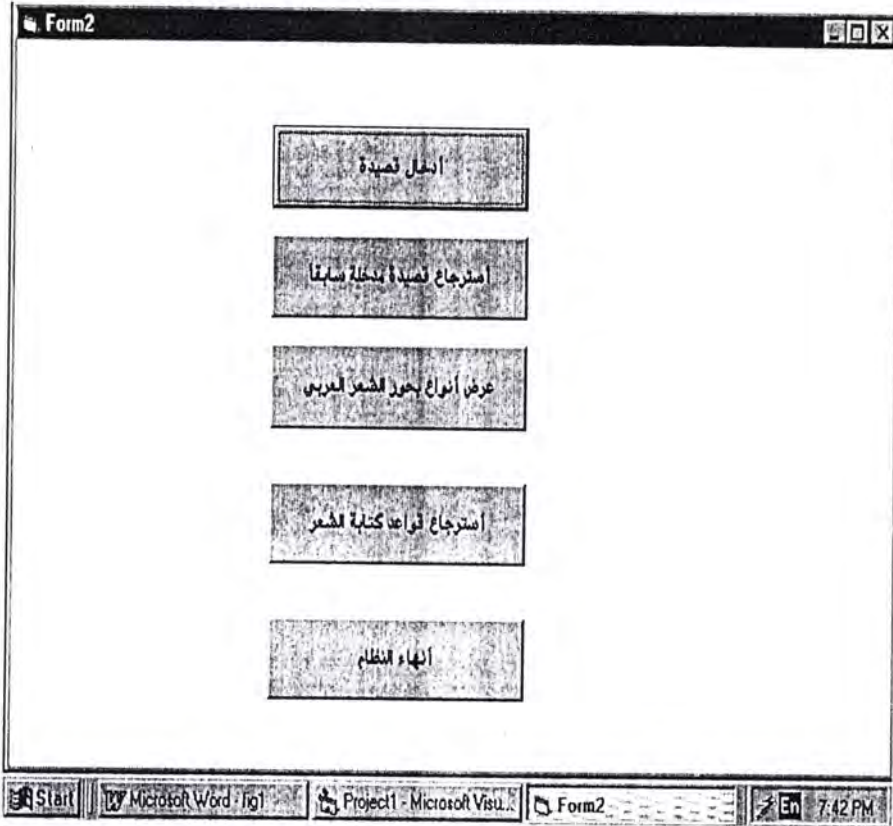 Form2
أدخال قصيدة
أسترجاع قصيدة مدخلة سابقاً
عرض أنواع بحور الشعر العربي
أسترجاع قواعد كتابة الشعر
أنهاء النظام
Start Microsoft Word - fig1 Project1 - Microsoft Visu... Form2 En 7:42 PM